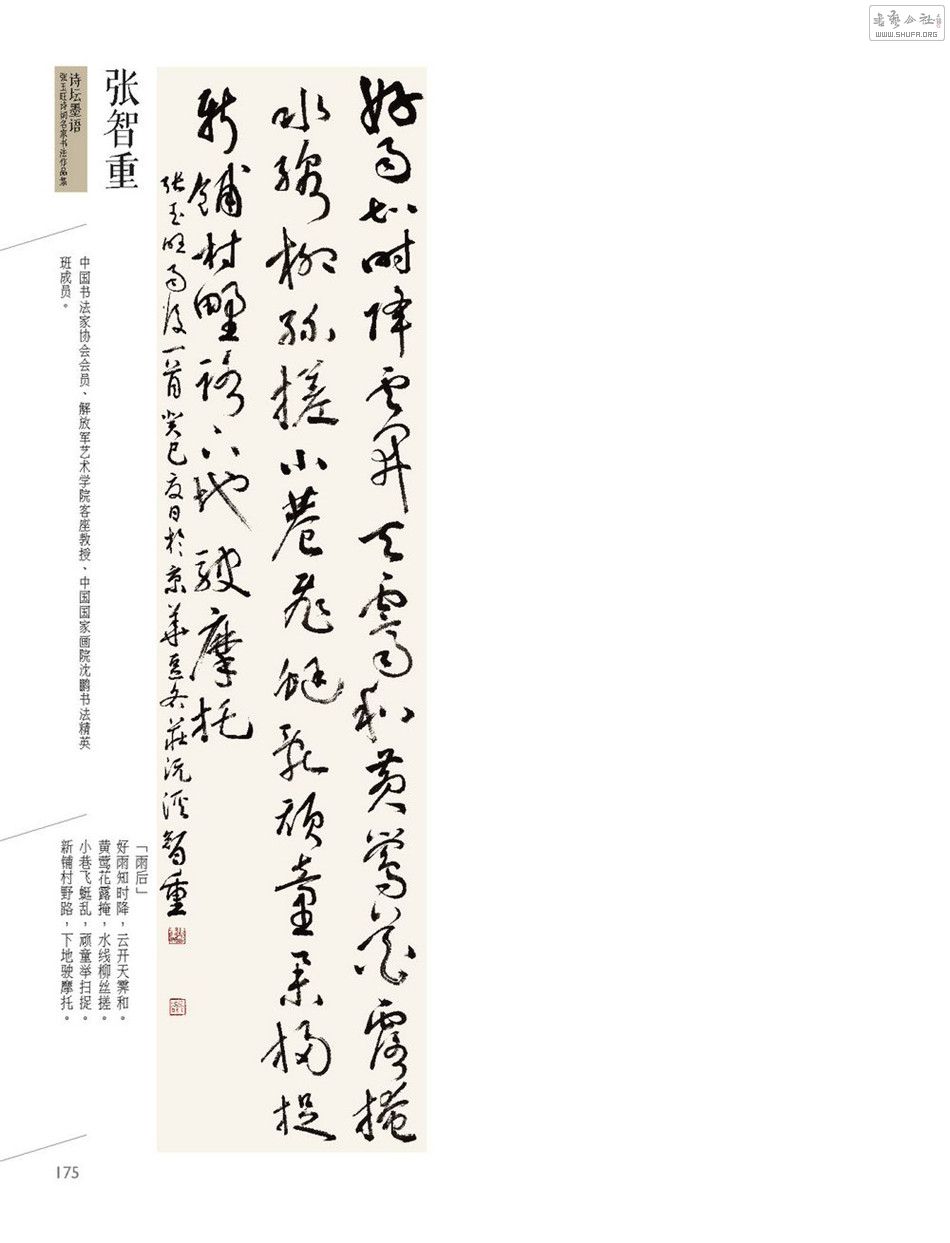 WWW.SHUFA.ORG
张智重
诗坛墨语
张玉旺诗词名家书法作品集
中国书法家协会会员、解放军艺术学院客座教授、中国国家画院沈鹏书法精英
班成员。
好雨知时降云开天霁和黄莺花露掩
水线柳丝搓小巷飞蜓乱顽童举扫捉
新铺村野路下地驶摩托
张玉旺雨后一首癸巳夏日於京華豆各莊沅溪智重
「雨后」
好雨知时降，云开天霁和。
黄莺花露掩，水线柳丝搓。
小巷飞蜓乱，顽童举扫捉。
新铺村野路，下地驶摩托。
175